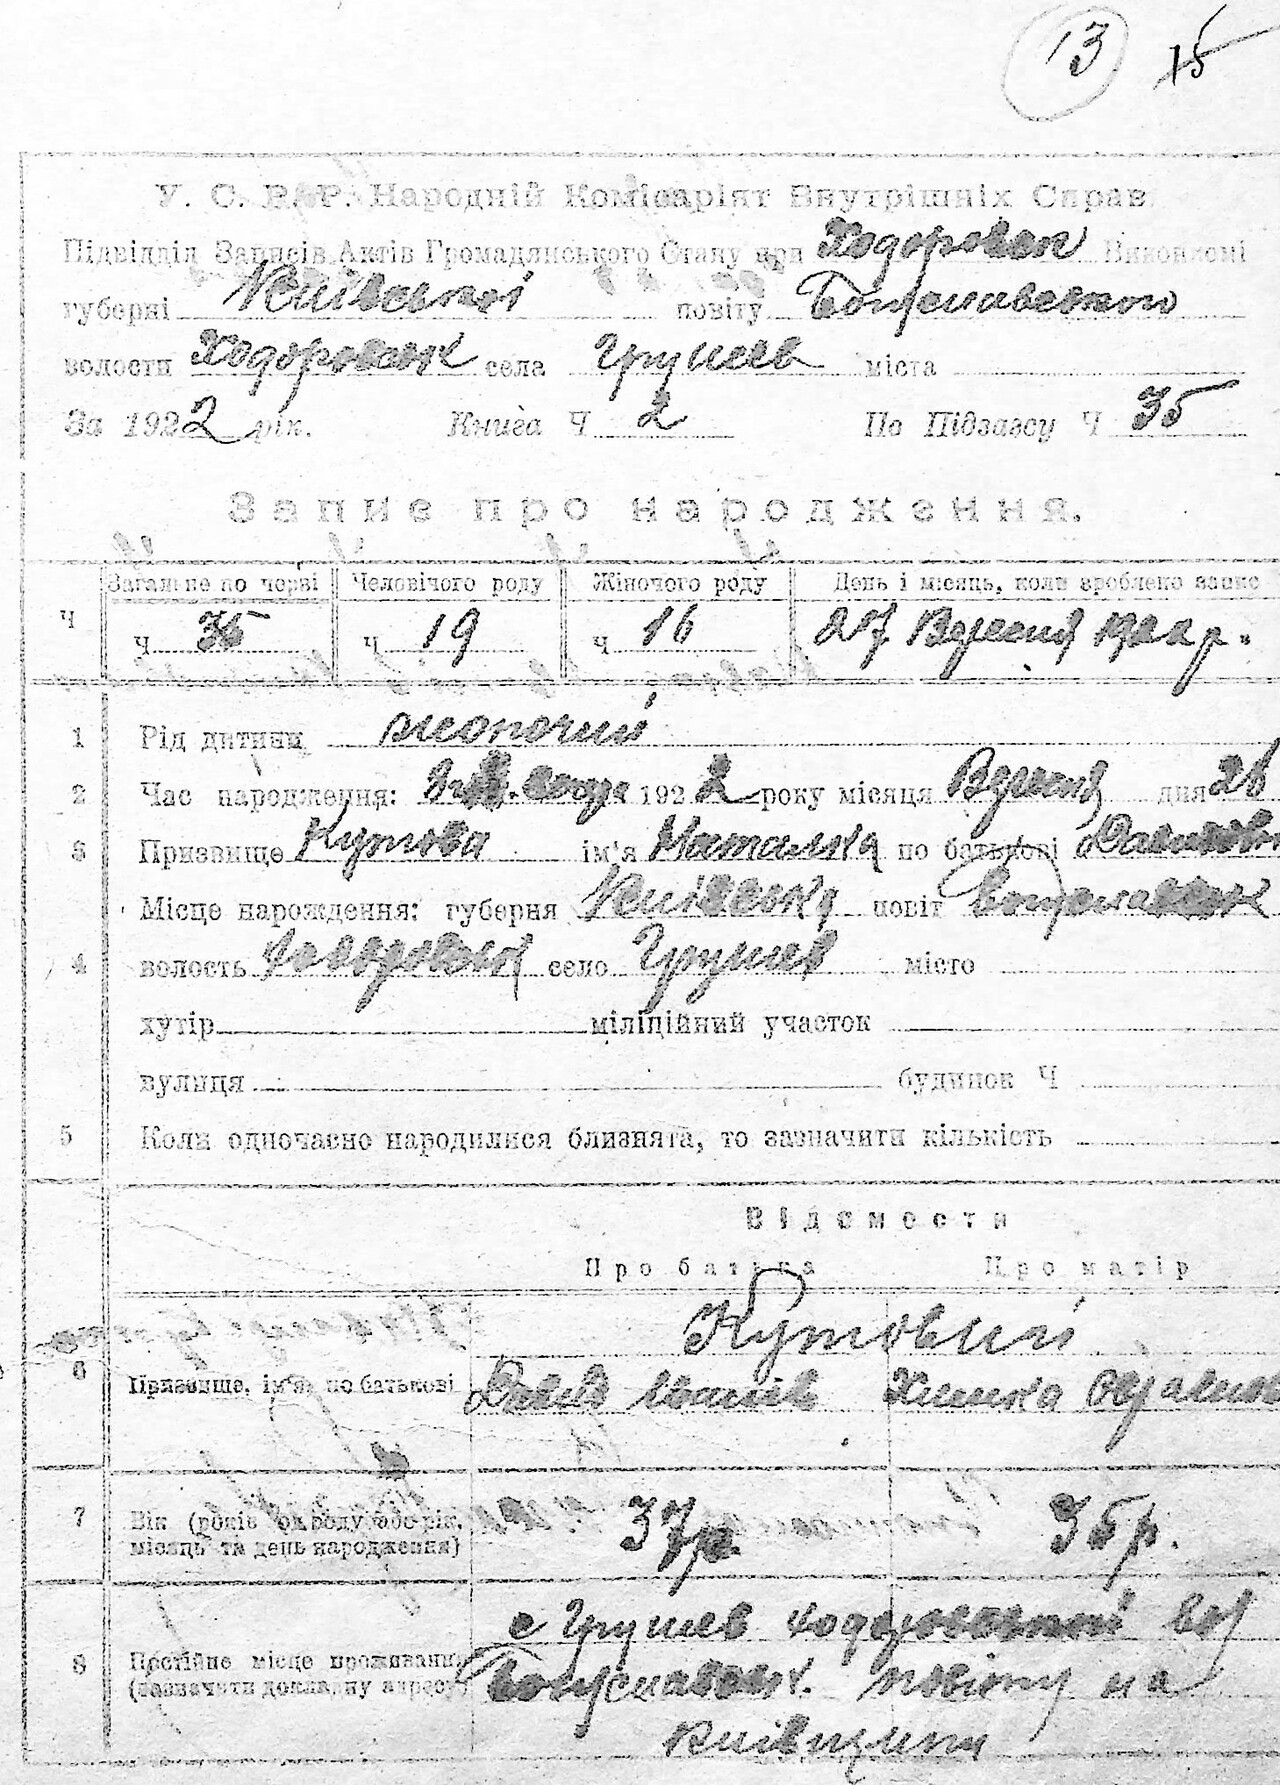 13 15
У. С. Р. Р. Народній Комісаріят Внутрішніх Справ
Підвідділ Записів Актів Громадянського Стану при Ходоровськ Виконкомі
губерні Київської повіту Богуславського
волости Ходоровськ села Грушев міста
За 1922 рік. Книга Ч 2 По Підзагсу Ч 35
Запис про народження.
Ч Загальне по черзі Человічого роду Жіночого роду День і місяць, коли зроблено запис
Ч 35 Ч 19 Ч 16 27 Вересня 1922 р.
1 Рід дитини жоночий
2 Час народження: 1922 року місяця Вересня дня 26
3 Призвище Кутова ім'я Наталка по батькові Давидовн
Місце нарождення: губерня Київська повіт Богуславськ
4 волость Ходоровськ село Грушев місто
хутір міліційний участок
вулиця будинок Ч
5 Коли одночасно народилися близнята, то зазначити кількість
Відомости
Про батька Про матір
Кутовий
6 Призвище, ім'я, по батькові Давид Химка
7 Вік (років од роду або рік, місяць та день народження) 37 р. 35 р.
с Грушев Ходоровської вол
8 Постійне місце проживання (зазначити докладну адресу) Богуславськ. повіту на
Київщині